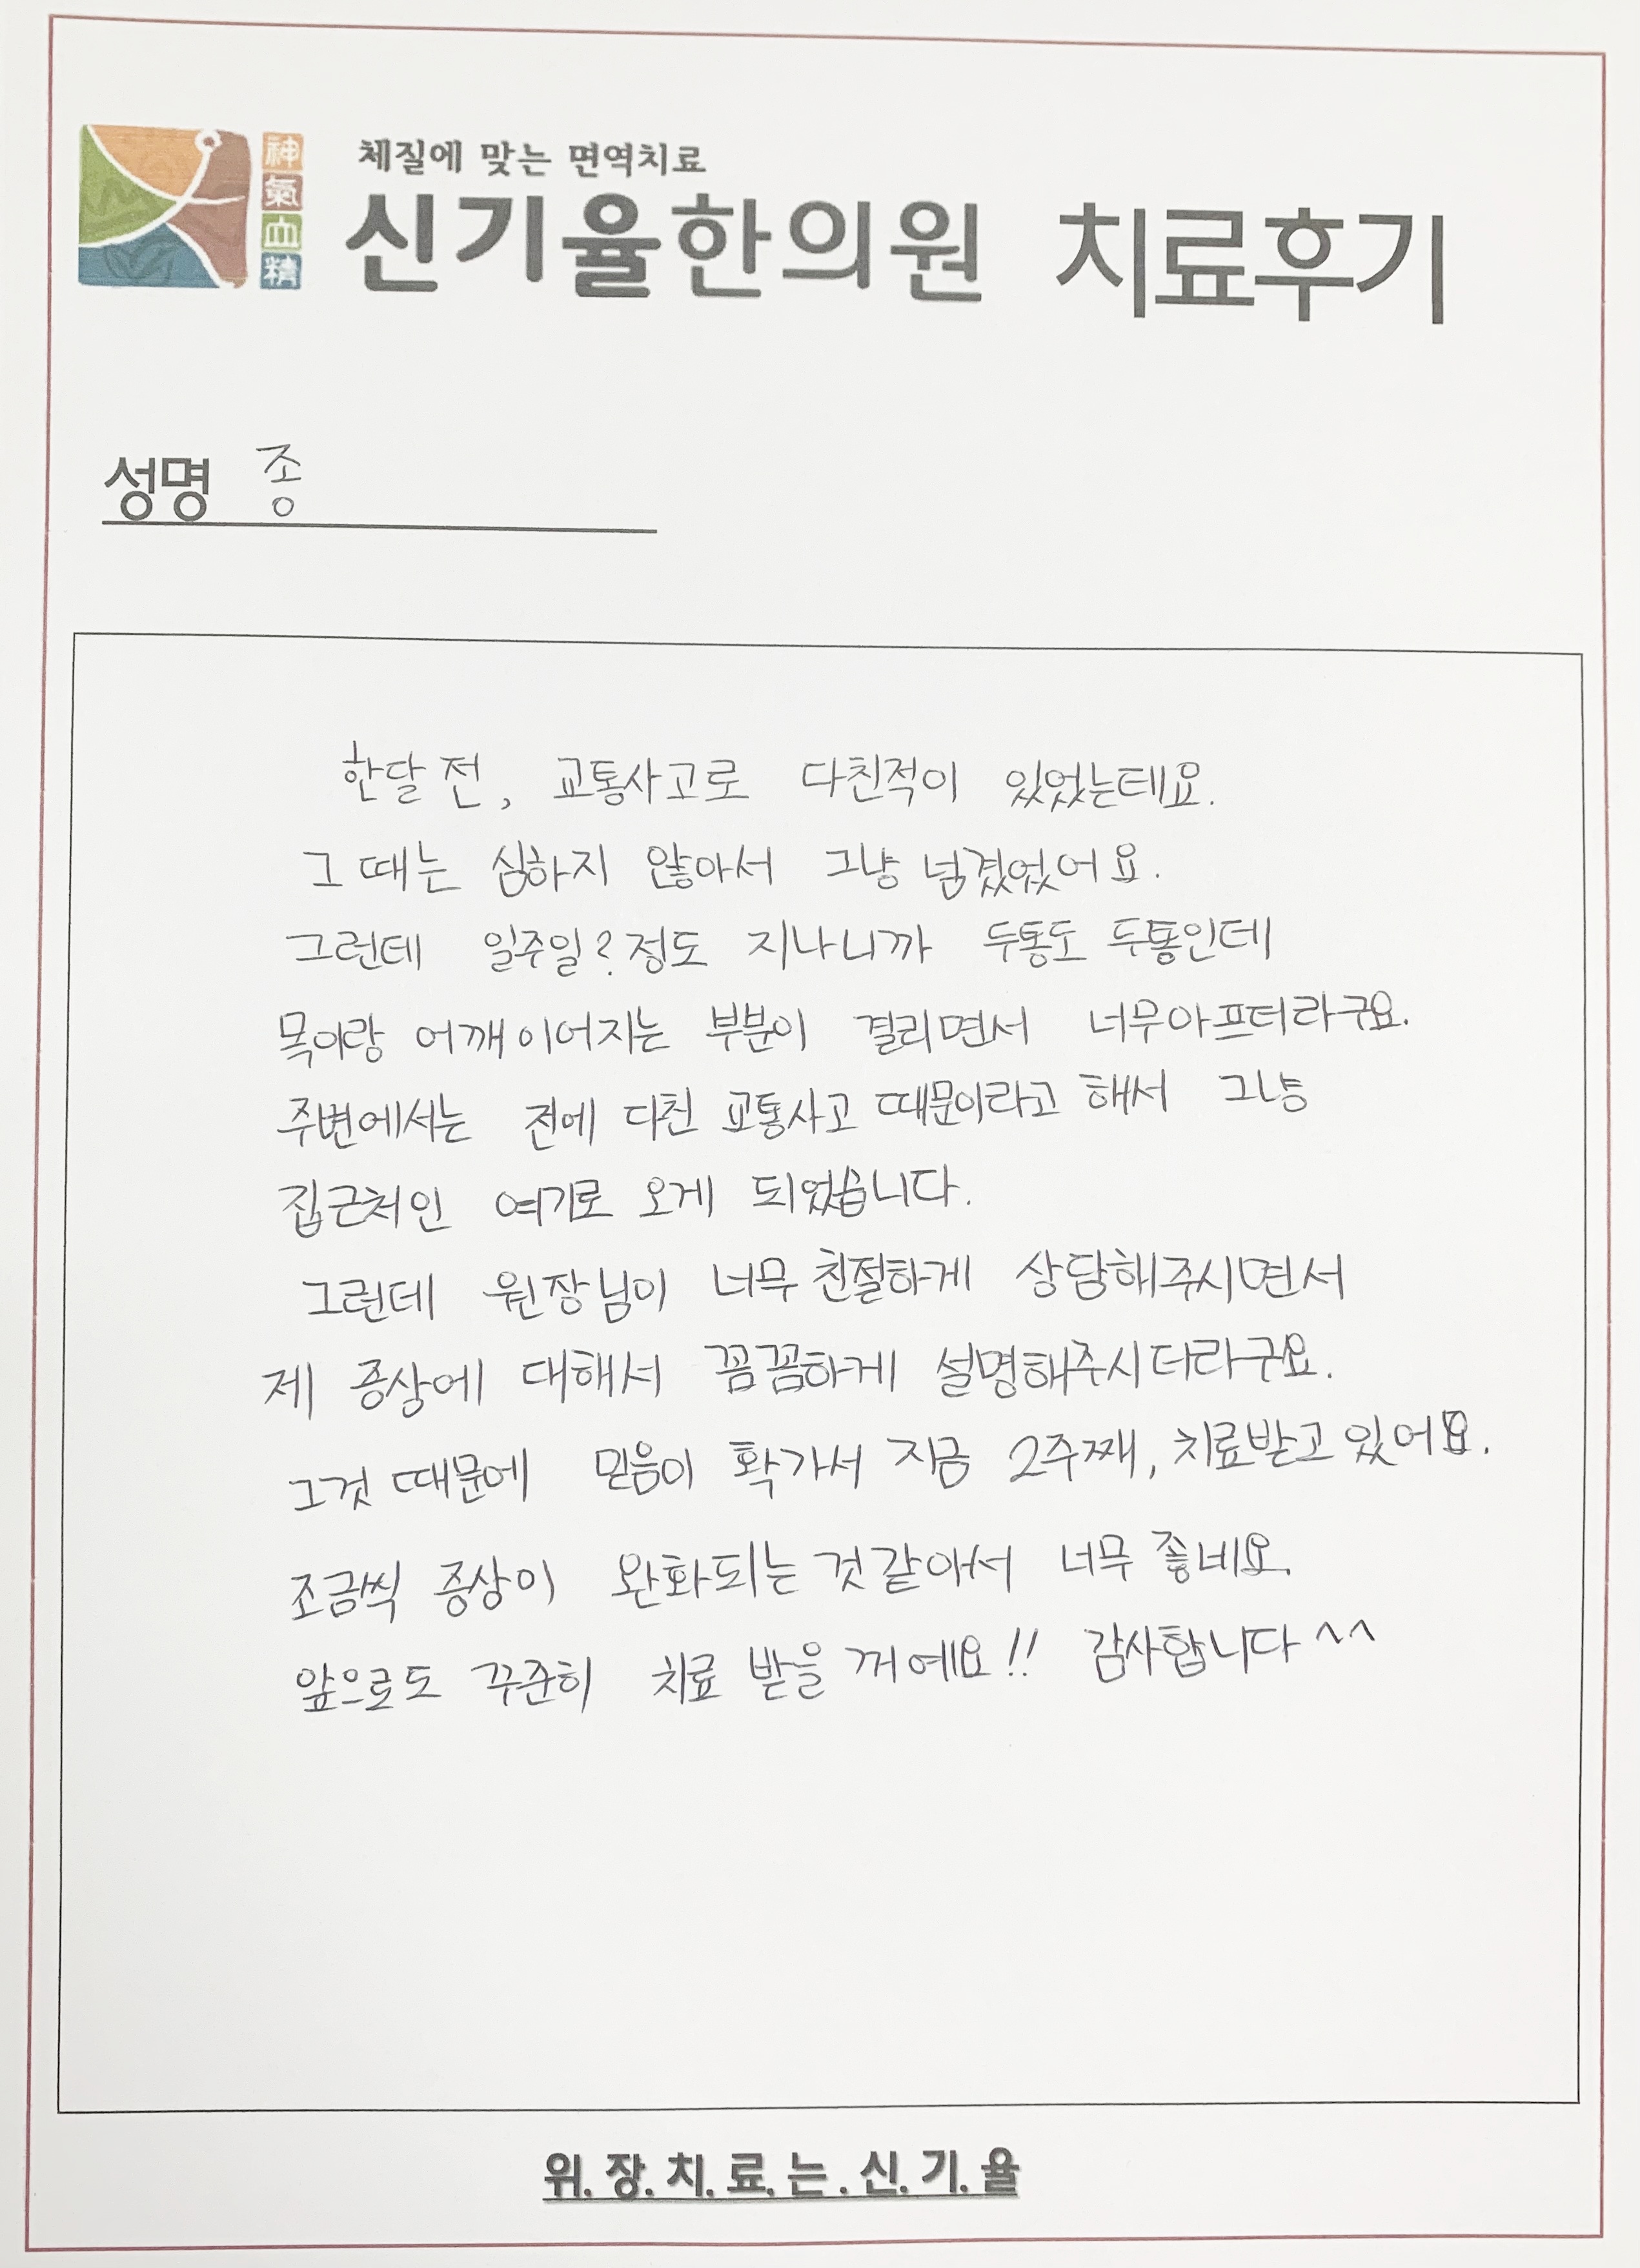 神
氣
血
精
체질에 맞는 면역치료
신기율한의원 치료후기
성명 종
한달 전, 교통사고로 다친적이 있었는테요.
그 때는 심하지 않아서 그냥 넘겼었어요.
그런데 일주일? 정도 지나니까 두통도 두통인데
목이랑 어깨 이어지는 부분이 결리면서 너무아프더라구요.
주변에서는 전에 다친 교통사고 때문이라고 해서 그냥
집근처인 여기로 오게 되었습니다.
그런데 원장님이 너무 친절하게 상담해주시면서
제 증상에 대해서 꼼꼼하게 설명해주시더라구요.
그것 때문에 믿음이 확가서 지금 2주째, 치료받고 있어요.
조금씩 증상이 완화되는 것 같아서 너무 좋네요.
앞으로도 꾸준히 치료 받을 꺼예요!! 감사합니다^^
위.장.치.료.는.신.기.율